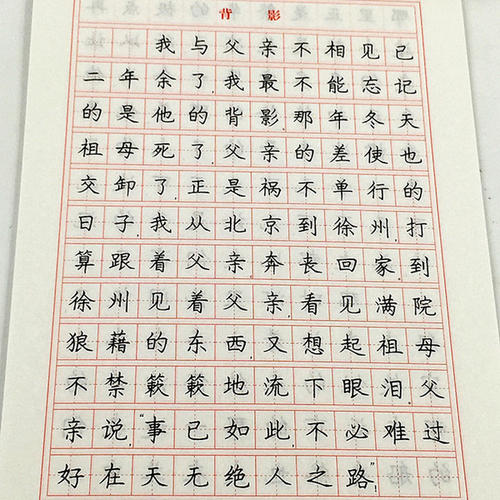 背影
我与父亲不相见已
二年余了,我最不能忘记
的是他的背影,那年冬天,
祖母死了,父亲的差使也
交卸了,正是祸不单行的
日子,我从北京到徐州,打
算跟着父亲奔丧回家,到
徐州见着父亲,看见满院
狼藉的东西,又想起祖母,
不禁簌簌地流下眼泪,父
亲说,“事已如此,不必难过,
好在天无绝人之路”,